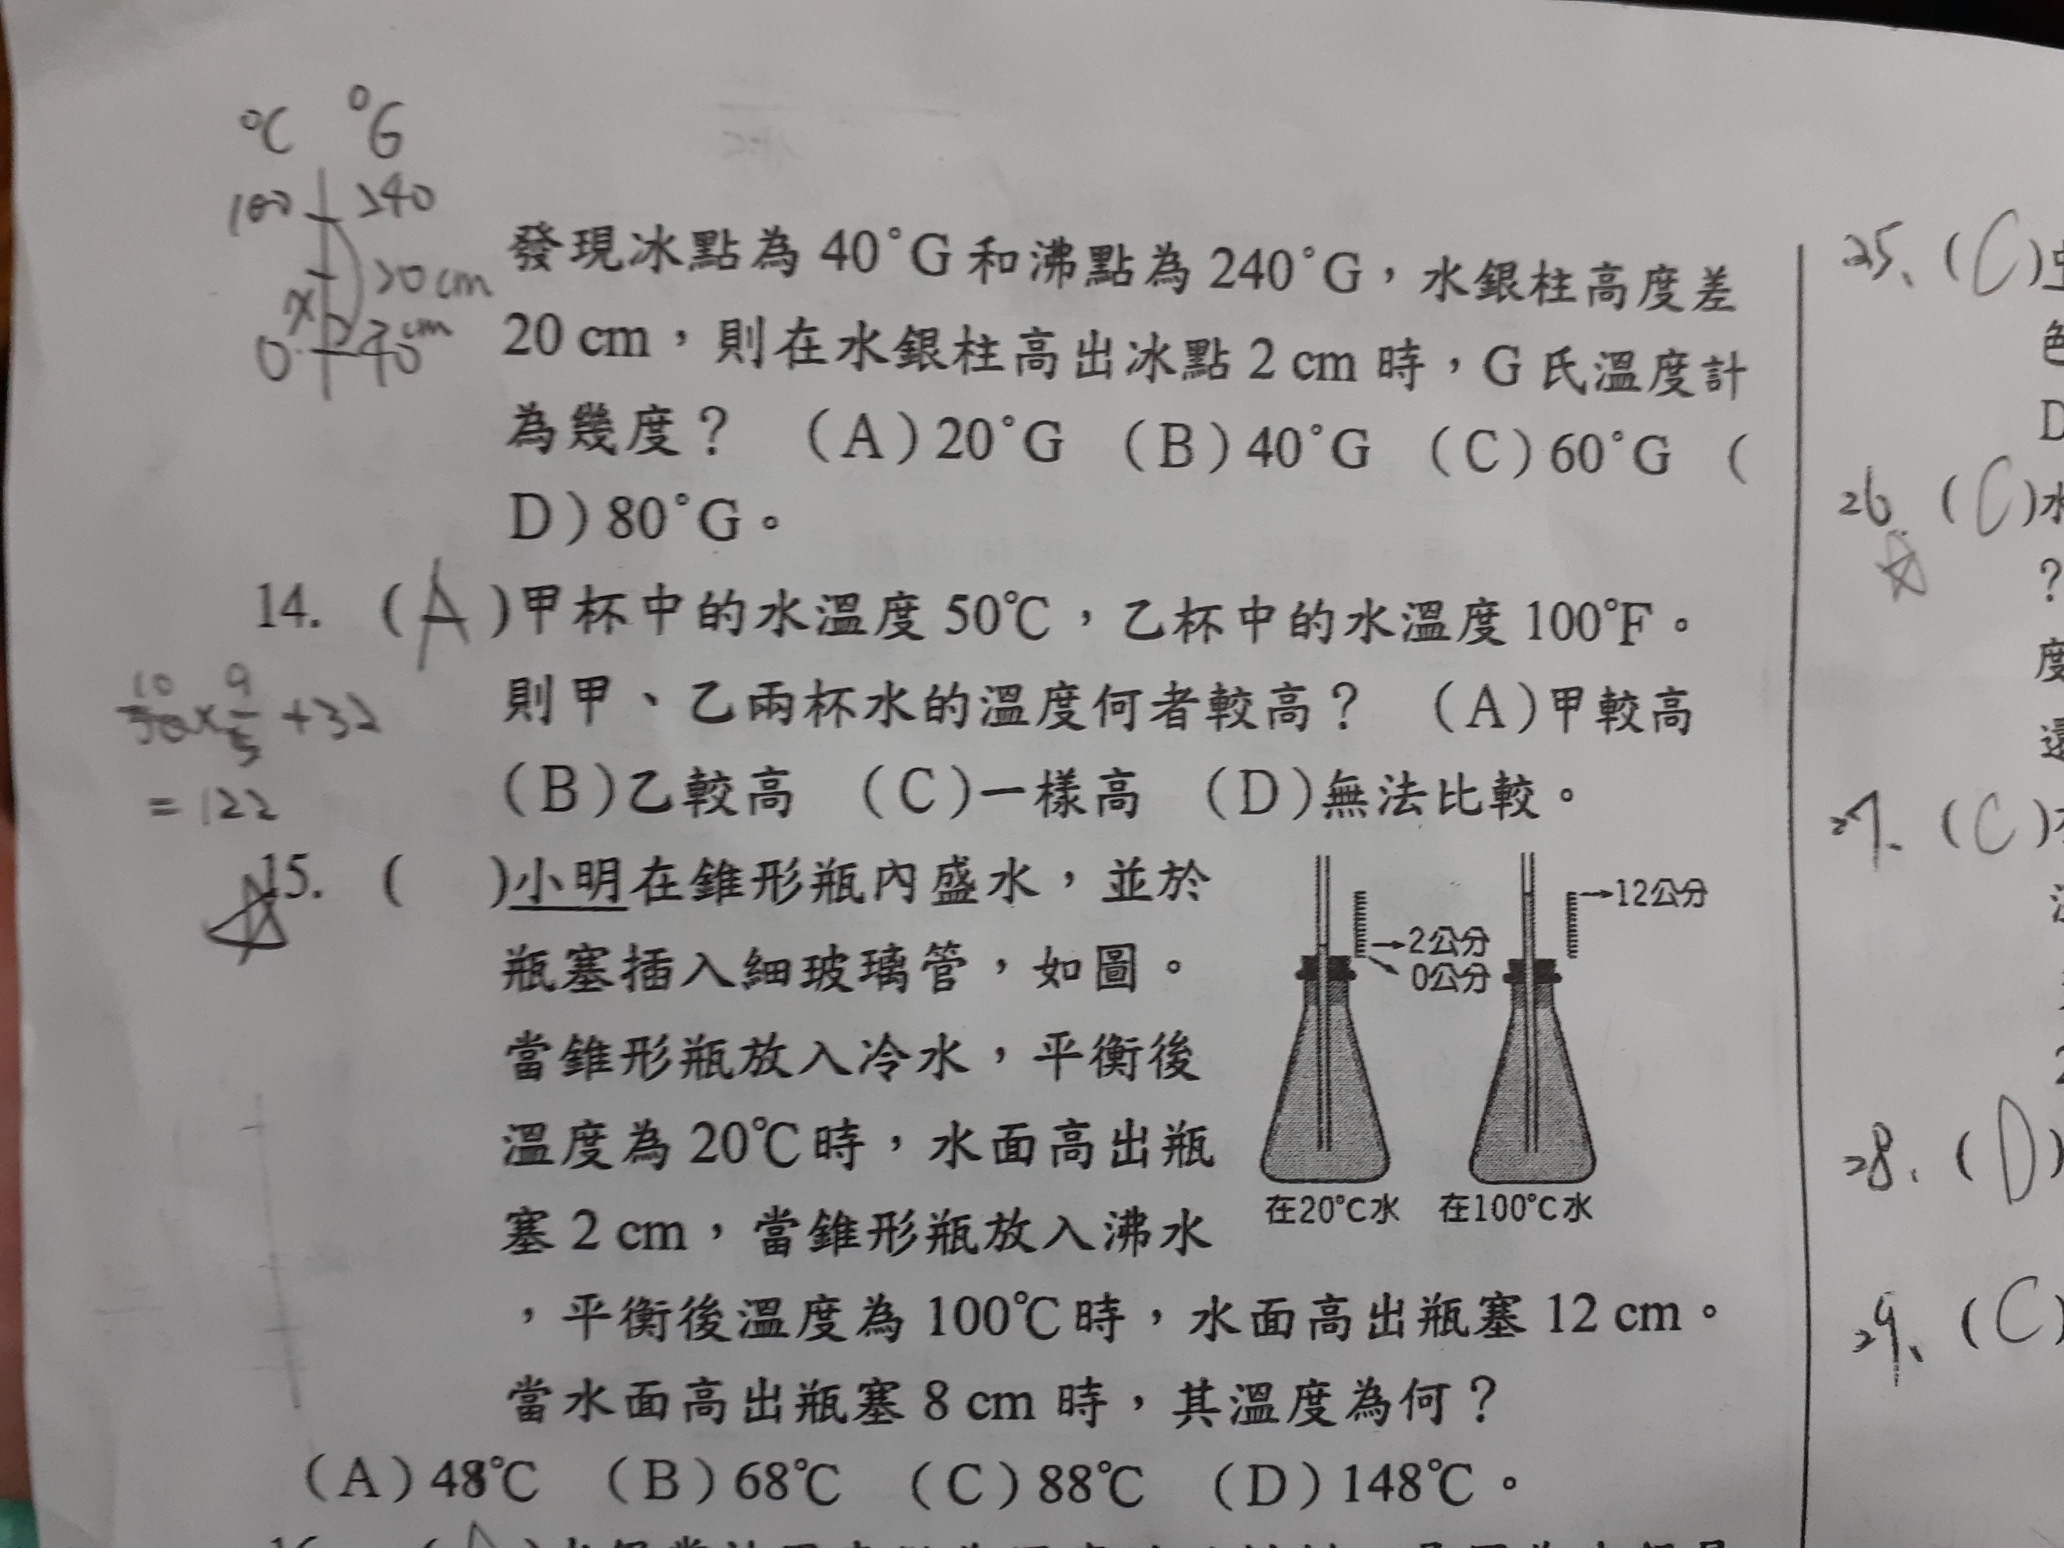 °C °G
100 240
20cm
x 2cm
0 40
發現冰點為40°G和沸點為240°G，水銀柱高度差
20 cm，則在水銀柱高出冰點2 cm時，G氏溫度計
為幾度？ (A)20°G (B)40°G (C)60°G (
D)80°G。
14. (A)甲杯中的水溫度50℃，乙杯中的水溫度100℉。
則甲、乙兩杯水的溫度何者較高？ (A)甲較高
(B)乙較高 (C)一樣高 (D)無法比較。
10
50×9/5+32
=122
15. ( )小明在錐形瓶內盛水，並於
瓶塞插入細玻璃管，如圖。
當錐形瓶放入冷水，平衡後
溫度為20℃時，水面高出瓶
塞2 cm，當錐形瓶放入沸水
，平衡後溫度為100℃時，水面高出瓶塞12 cm。
當水面高出瓶塞8 cm時，其溫度為何？
(A)48℃ (B)68℃ (C)88℃ (D)148℃。
→2公分
→0公分
→12公分
在20℃水
在100℃水
25、(C)
色
D
26、(C)水
？
度
還
27、(C)
28、(D)
29、(C)